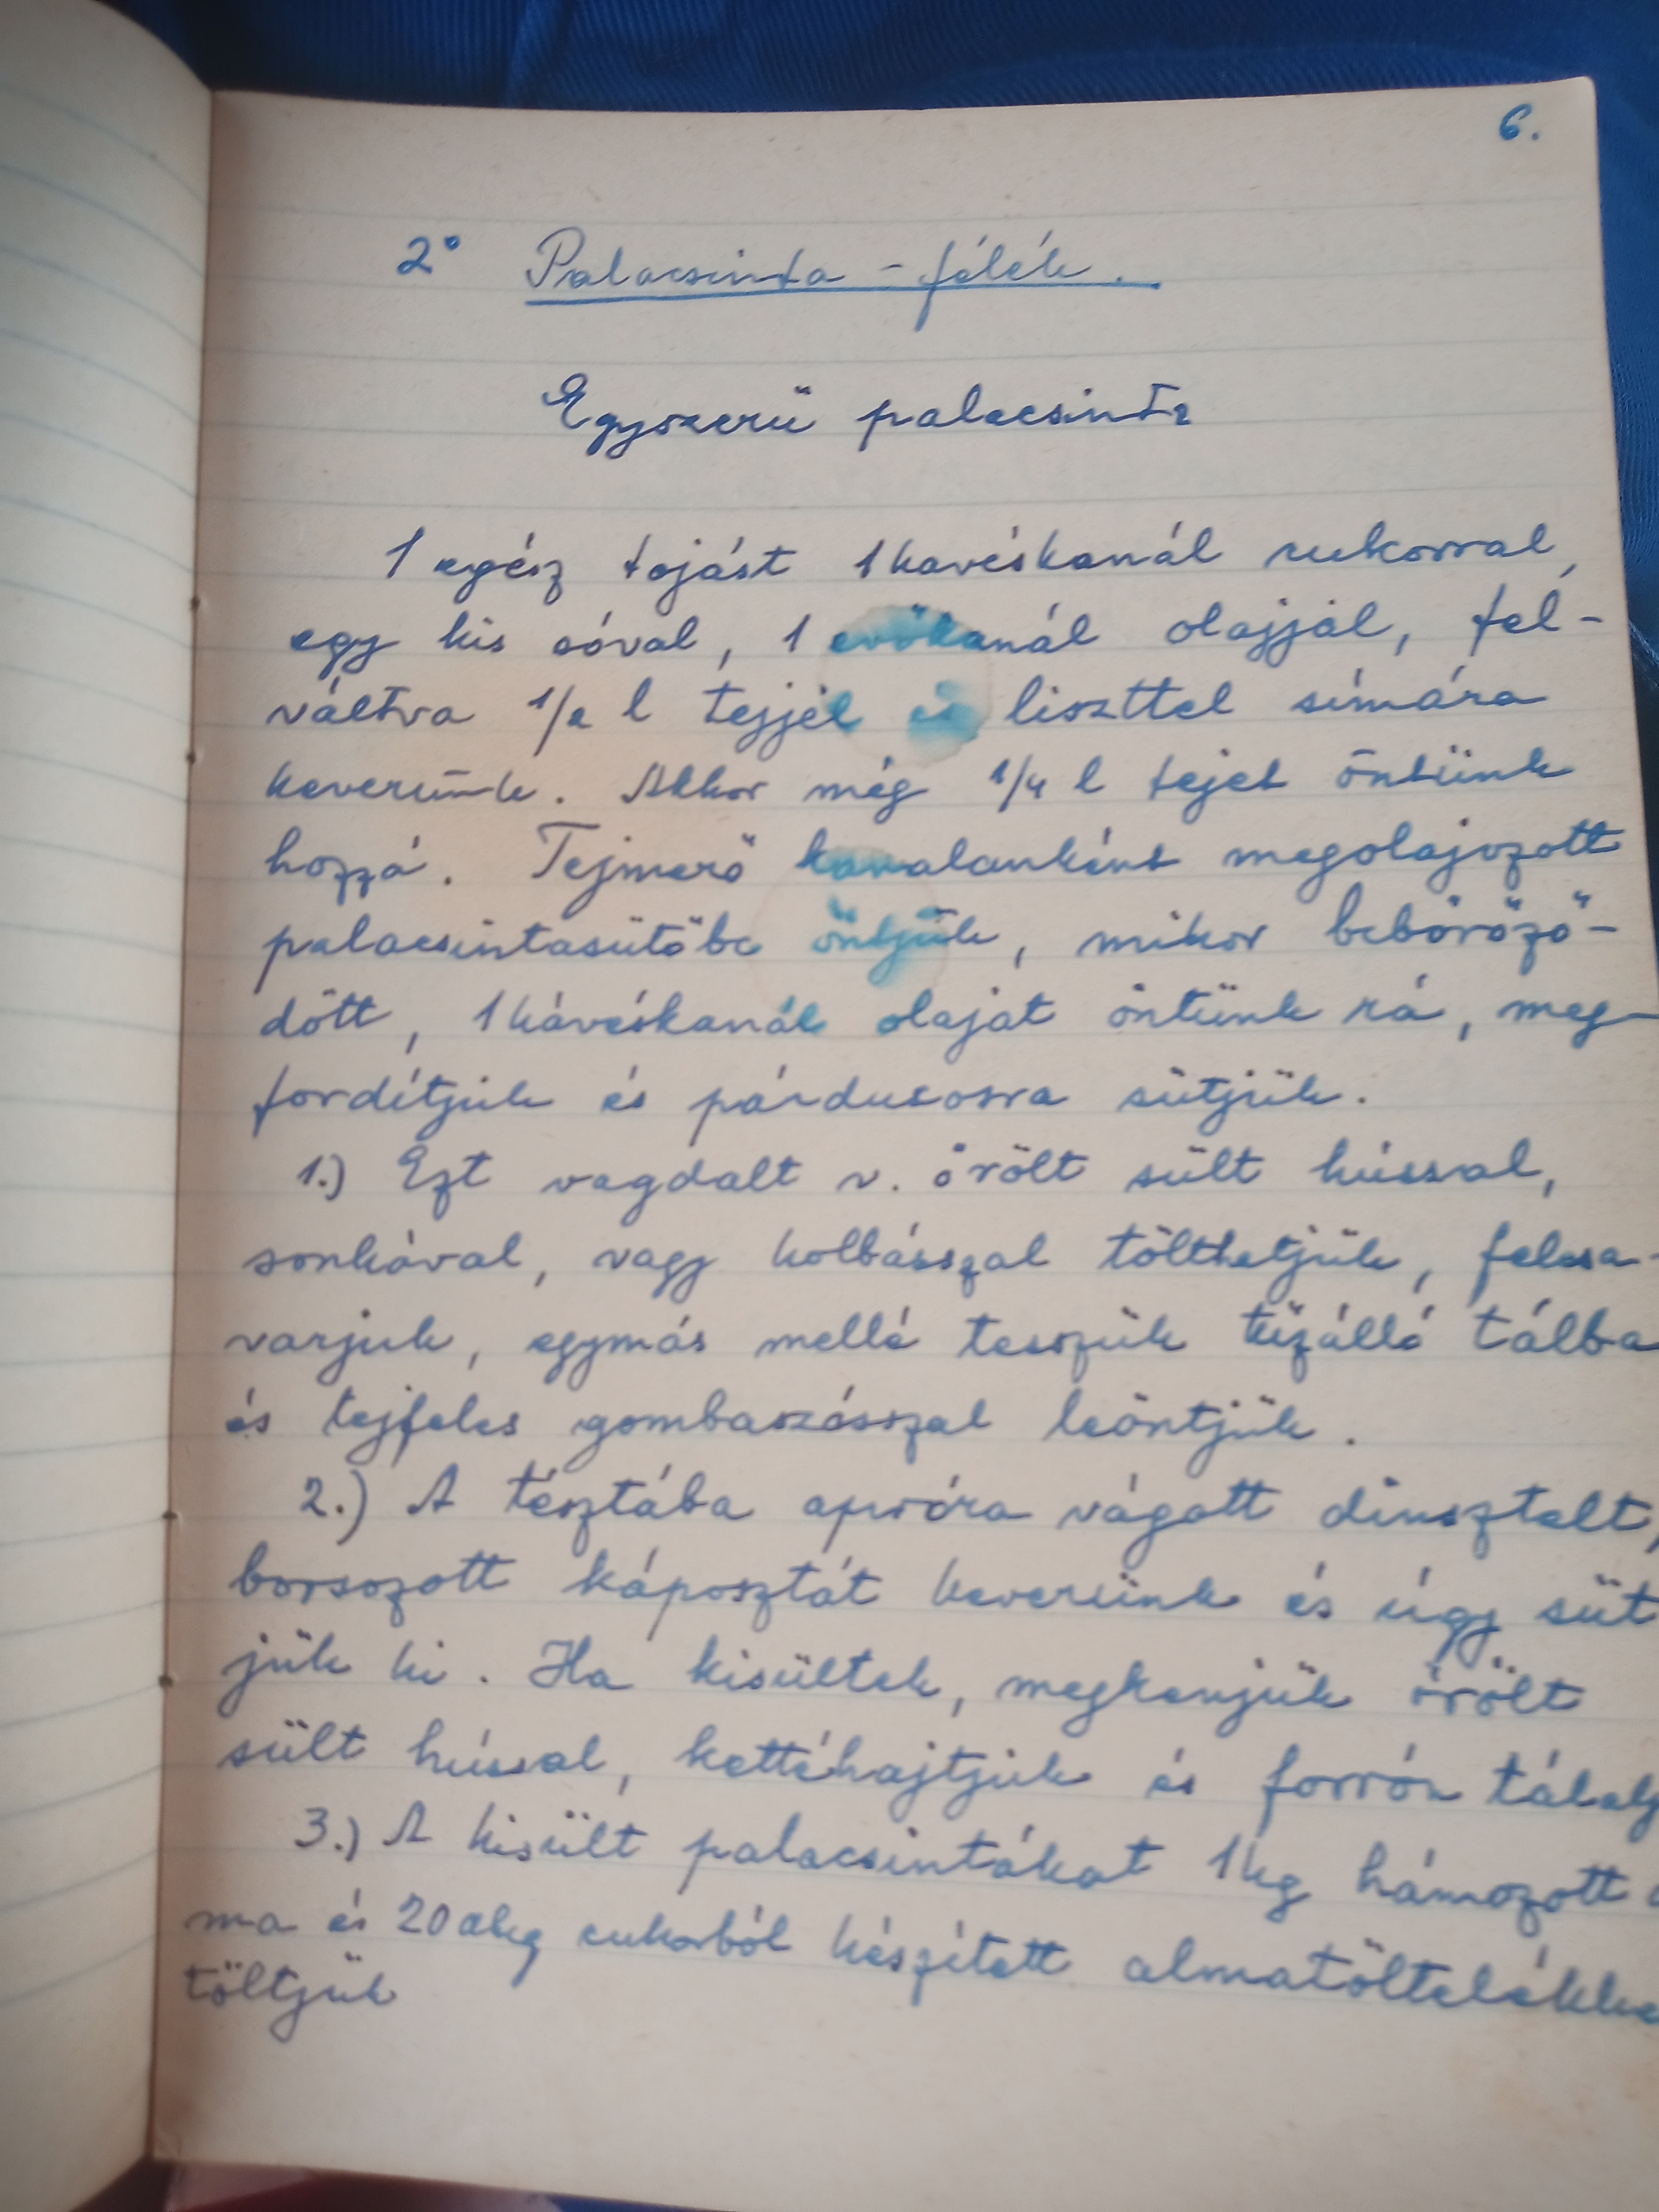 6.
2° Palacsinta-félék.
Egyszerű palacsinta
1 egész tojást 1 kavéskanál cukorral,
egy kis sóval, 1 evőkanál olajjal, fel-
váltva 1/2 l tejjel és liszttel símára
keverünk. Akkor még 1/4 l tejet öntünk
hozzá. Tejmerő kanalanként megolajozott
palacsintasütőbe öntjük, mikor bebőröző-
dött, 1 kávéskanál olajat öntünk rá, meg-
fordítjuk és párducosra sütjük.
1.) Ezt vagdalt v. őrölt sült hússal,
sonkával, vagy kolbásszal tölthetjük, felcsa-
varjuk, egymás mellé tesszük tűzálló tálba
és tejfeles gombaszásszal leöntjük.
2.) A tésztába apróra vágott dinsztelt,
borsozott káposztát keverünk és úgy süt
jük ki. Ha kisültek, megkenjük őrölt
sült hússal, kettéhajtjuk és forrón tálalj
3.) A kisült palacsintákat 1 kg hámozott
ma és 20 dkg cukorból készített almatöltelékke
töltjük